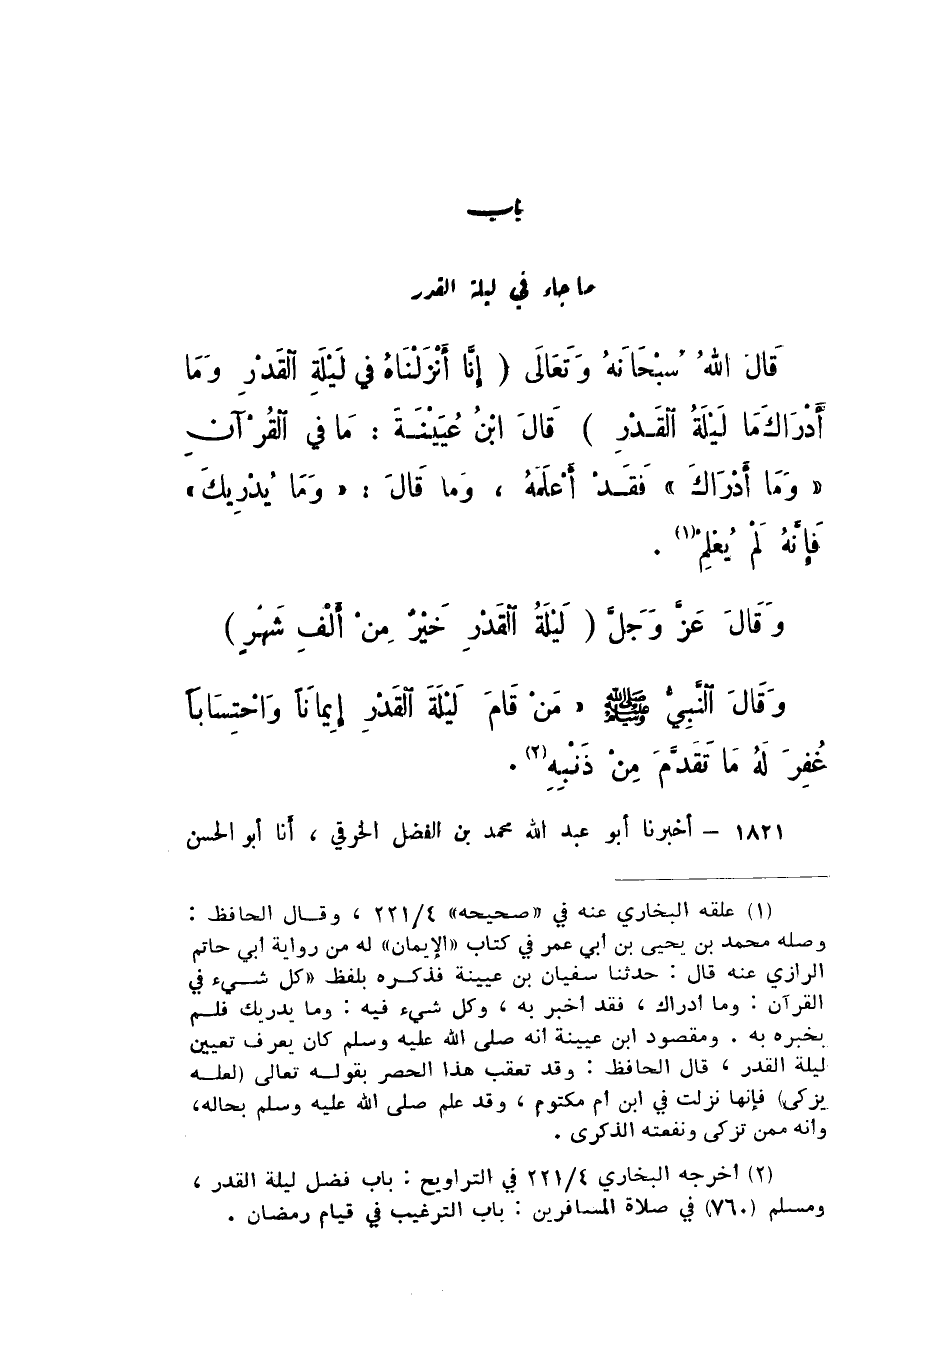 باب
ما جاء في ليلة القدر
قَالَ اللهُ سُبْحَانَهُ وَتَعَالَى ( إِنَّا أَنْزَلْنَاهُ في لَيْلَةِ القَدْرِ وَمَا
أَدْرَاكَ مَا لَيْلَةُ القَـدْرِ ) قَالَ ابْنُ عُيَيْنَـةَ : مَا في القُرْآنِ
« وَمَا أَدْرَاكَ » فَقَـدْ أَعْلَمَهُ ، وَما قَالَ : « وَمَا يُدْرِيكَ »
فَإِنَّهُ لَمْ يُعْلِمْ(١) .
وَقَالَ عَزَّ وَجَلَّ ( لَيْلَةُ القَدْرِ خَيْرٌ مِنْ أَلْفِ شَهْرٍ )
وَقَالَ النَّبِيُّ ﷺ « مَنْ قَامَ لَيْلَةَ القَدْرِ إِيمَانَاً وَاحْتِسَابَاً
غُفِرَ لَهُ مَا تَقَدَّمَ مِنْ ذَنْبِهِ(٢) .
١٨٢١ – أخبرنا أبو عبد الله محمد بن الفضل الخرقي ، أنا أبو الحسن
(١) علقه البخاري عنه في «صحيحه» ٢٢١/٤ ، وقـال الحافظ :
وصله محمد بن يحيى بن أبي عمر في كتاب «الإيمان» له من رواية أبي حاتم
الرازي عنه قال : حدثنا سفيان بن عيينة فذكـره بلفظ «كل شـيء في
القرآن : وما أدراك ، فقد أخبر به ، وكل شيء فيه : وما يدريك فلـم
يخبره به . ومقصود ابن عيينة أنه صلى الله عليه وسلم كان يعرف تعيين
ليلة القدر ، قال الحافظ : وقد تعقب هذا الحصر بقولـه تعالى (لعلـه
يزكى) فإنها نزلت في ابن أم مكتوم ، وقد علم صلى الله عليه وسلم بحاله،
وأنه ممن تزكى ونفعته الذكرى .
(٢) أخرجه البخاري ٢٢١/٤ في التراويح : باب فضل ليلة القدر ،
ومسلم (٧٦٠) في صلاة المسافرين : باب الترغيب في قيام رمضان .